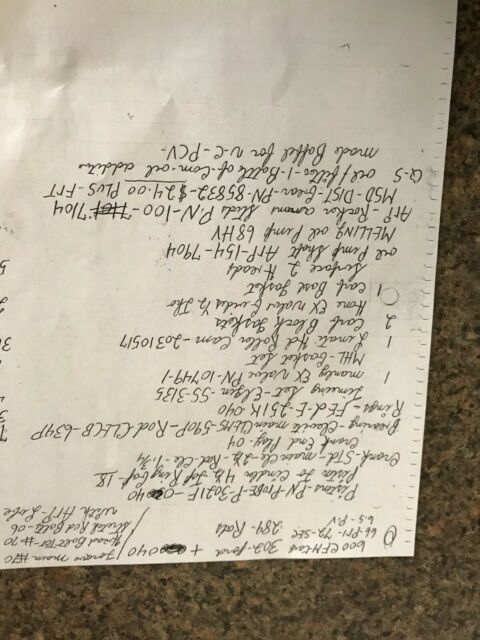 600 CFM Carb 302-Ford +040 Torque main #70
66-Pri-72-Sec 289 Rods Head Bolts TOR-#70
6.5-P.V Street Rod Bolts-06
with ARP Lube
Pistons-PN-Probe-P-3021F-040
Piston to 4½ Top Ring Gap 18
Crank-STD-main Cle-2½-Rod-Cle-1-3/4
Crank End Play-04
Bearing-Clevite main CLEMS-590P-Rod CLECB-634P
Rings-FED-E-251K 040
Timing Set-Elgin-SS-3135
1 manley EX Valve PN-10749-1
MHL-Gasket Set
1 Lunati Hyd Roller Cam-20310517
2 Carb Block Gaskets
Hone EX Valve Guides ½ Tho
1 Carb Base Gasket
Surface 2 Heads
oil Pump Shaft ARP-154-7904
MELLING oil Pump 68HV
ARP-Rocker arm Studs P.N-100-7104
MSD-DIST-Gear-PN-85832-$24.00 PLUS-FRT
Q-5 oil/filter-1-Bottle of Com oil additive
made Baffel for V-C-PCV-